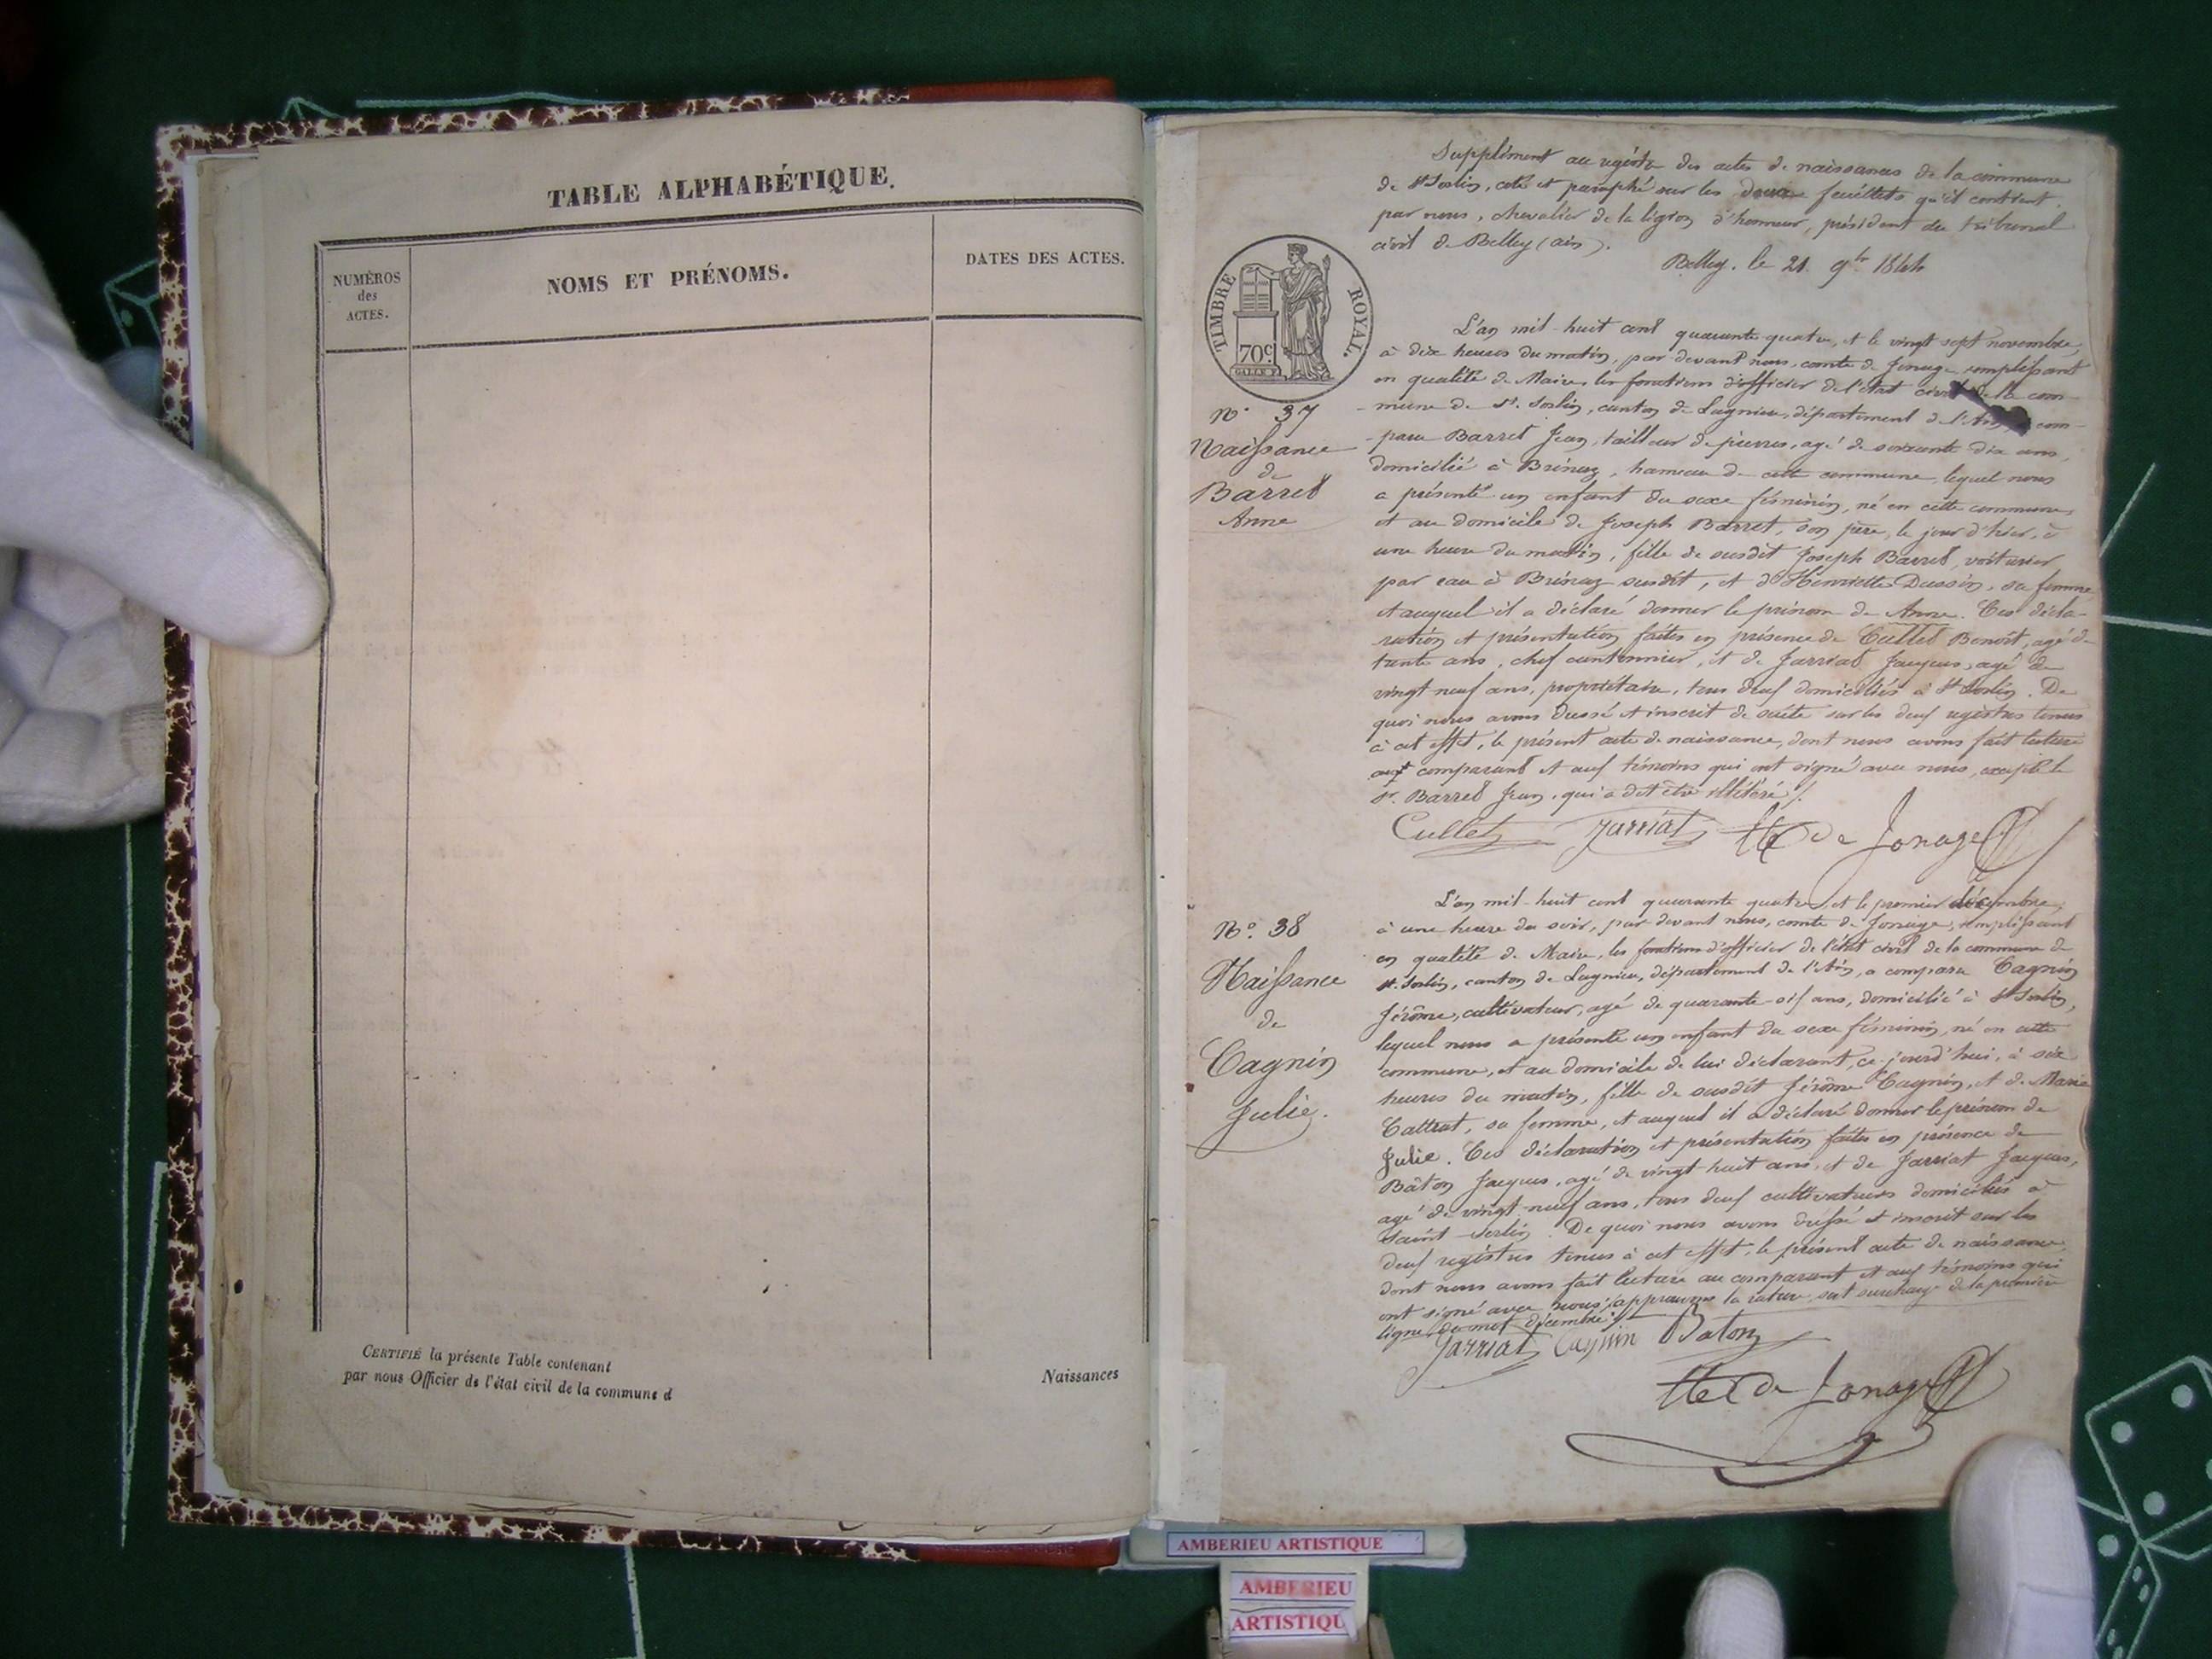 TABLE ALPHABÉTIQUE.
NUMÉROS
des
ACTES.
NOMS ET PRÉNOMS.
DATES DES ACTES.
CERTIFIÉ la présente Table contenant
par nous Officier de l'état civil de la commune d
Naissances
Supplément au registre des actes de naissances de la commune
de St Sorlin, coté et paraphé sur les deux feuillets qu'il contient,
par nous, chevalier de la légion d'honneur, président du tribunal
civil de Belley (ain).
Belley, le 21 9bre 1844
TIMBRE ROYAL.
70c
N° 37
Naissance
de
Barret
Anne
L'an mil-huit cent quarante quatre, et le vingt sept novembre,
à dix heures du matin, par devant nous, comte de Jonage, remplissant
en qualité de Maire, les fonctions d'officier de l'état civil de la com-
mune de St. Sorlin, canton de Lagnieu, département de l'Ain, a com-
paru Barret Jean, tailleur de pierres, agé de soixante dix ans,
domicilié à Brénaz, hameau de cette commune, lequel nous
a présenté un enfant du sexe féminin, né en cette commune,
et au domicile de Joseph Barret, son père, le jour d'hier, à
une heure du matin, fille de susdit Joseph Barret, voiturier
par eau à Brénaz susdit, et d'Henriette Dussin, sa femme
et auquel il a déclaré donner le prénom de Anne. Ces décla-
ration et présentation faites en présence de Cullet Benoît, agé de
trente ans, chef cantonnier, et de Jarriat Jacques, agé de
vingt neuf ans, propriétaire, tous deux domiciliés à St Sorlin. De
quoi nous avons dressé et inscrit de suite sur les deux registres tenus
à cet effet, le présent acte de naissance, dont nous avons fait lecture
aux comparant et aux témoins qui ont signé avec nous, excepté le
Sr. Barret Jean, qui a dit être illétéré /.
Cullet Jarriat Cte de Jonage
N° 38
Naissance
de
Cagnin
Julie.
L'an mil-huit cent quarante quatre, et le premier décembre,
à une heure du soir, par devant nous, comte de Jonage, remplissant
en qualité de Maire, les fonctions d'officier de l'état civil de la commune de
St. Sorlin, canton de Lagnieu, département de l'Ain, a comparu Cagnin
Jérôme, cultivateur, agé de quarante-six ans, domicilié à St Sorlin,
lequel nous a présenté un enfant du sexe féminin, né en cette
commune, et au domicile de lui déclarant, ce-jourd'hui, à six
heures du matin, fille de susdit Jérôme Cagnin, et de Marie
Cattrat, sa femme, et auquel il a déclaré donner le prénom de
Julie. Ces déclaration et présentation faites en présence de
Bâton Jacques, agé de vingt huit ans, et de Jarriat Jacques,
agé de vingt neuf ans, tous deux cultivateurs domiciliés à
Saint-Sorlin. De quoi nous avons dressé et inscrit sur les
deux registres tenus à cet effet, le présent acte de naissance,
dont nous avons fait lecture au comparant et aux témoins qui
ont signé avec nous; approuvons la rature, soit surcharge de la première
ligne, du mot décembre /.
Jarriat Cagnin Baton
Cte de Jonage
AMBERIEU ARTISTIQUE
AMBERIEU
ARTISTIQU